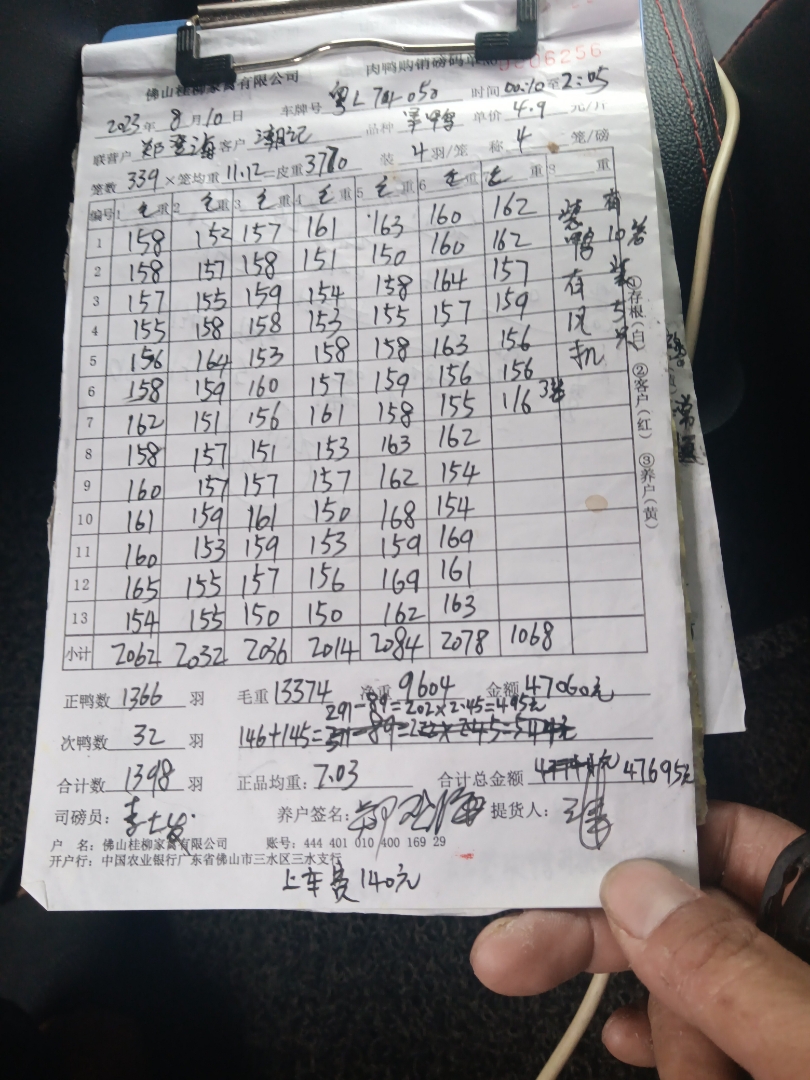 佛山桂柳家禽有限公司 肉鸭购销磅码单 0206256
2023年8月10日 车牌号 粤L74050 时间00:10至2:05
联营户 郑澄海 客户 潮记 品种 单鸭 单价 4.9 元/斤
笼数 339 ×笼均重11.12=皮重3770 装 4 羽/笼 称 4 笼/磅
编号 1 毛重 2 毛重 3 毛重 4 毛重 5 毛重 6 毛重 7 毛重 8 重
1 158 152 157 161 163 160 162
2 158 157 158 151 150 160 162
3 157 155 159 154 158 164 157
4 155 158 158 153 155 157 159
5 156 164 153 158 158 163 156
6 158 159 160 157 159 156 156
7 162 151 156 161 158 155 116
8 158 157 151 153 163 162
9 160 157 157 157 162 154
10 161 159 161 150 168 154
11 160 153 159 153 159 169
12 165 155 157 156 169 161
13 154 155 150 150 162 163
小计 2062 2032 2036 2014 2084 2078 1068
装鸭有风机
①存根(白) ②客户(红) ③养户(黄)
正鸭数 1366 羽 毛重 13374 净重 9604 金额 47060元
291-89=202×2.45=495元
次鸭数 32 羽 146+145=
合计数 1398 羽 正品均重: 7.03 合计总金额 47695元
司磅员: 养户签名: 提货人:
户 名: 佛山桂柳家禽有限公司 账号: 444 401 010 400 169 29
开户行: 中国农业银行广东省佛山市三水区三水支行
上车费 140元